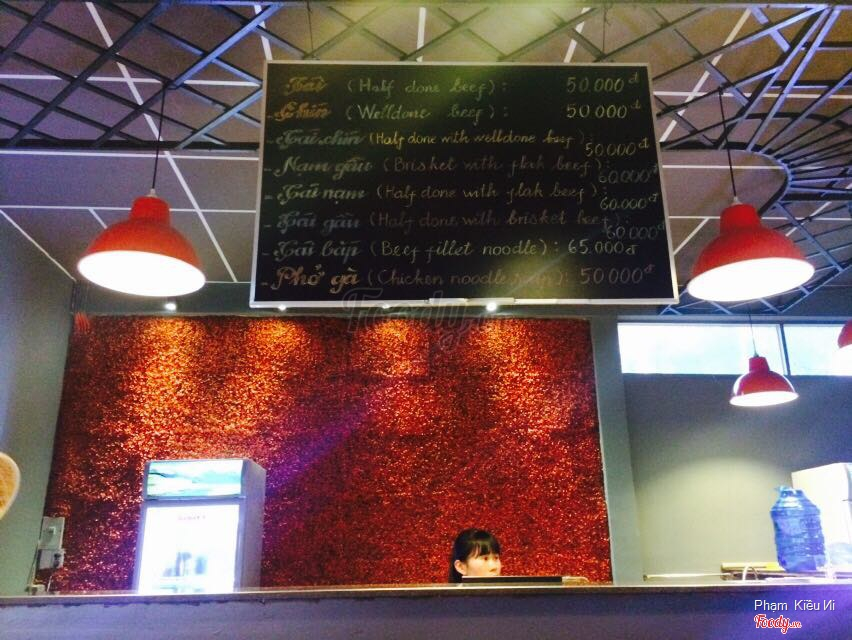 - Tái (Half done beef): 50.000đ
- Chín (Welldone beef): 50.000đ
- Tái chín (Half done with welldone beef): 50.000đ
- Nạm gầu (Brisket with flak beef): 60.000đ
- Tái nạm (Half done with flak beef): 60.000đ
- Tái gầu (Half done with brisket beef): 60.000đ
- Tái bắp (Beef fillet noodle): 65.000đ
- Phở gà (Chicken noodle soup): 50.000đ
Foody.vn
Phạm Kiều Ni
Foody.vn